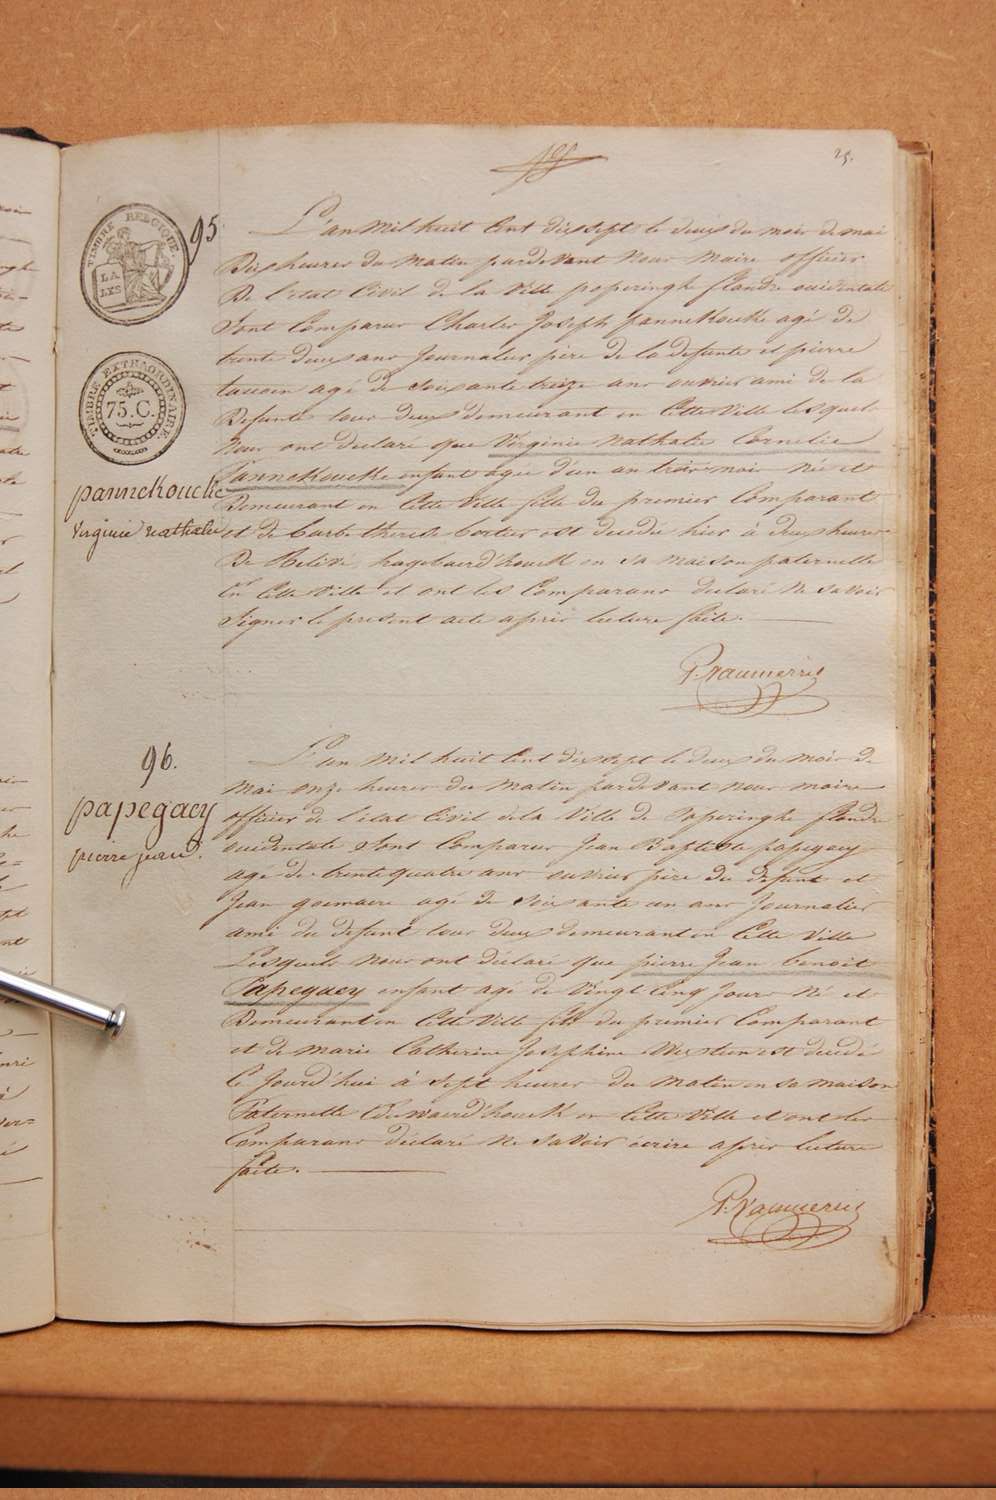 25.
TIMBRE BELGIQUE.
LA
LYS
TIMBRE EXTRAORDINAIRE.
75.C.
95
pannekoucke
virginie nathalie
L'an mil huit Cent dixsept le deux du mois de mai
Dix heures du matin pardevant nous maire officier
De l'etat Civil de la Ville poperinghe flandre occidentale
Sont Comparus Charles Joseph pannekoucke agé de
trente deux ans Journalier père de la defunte et pierre
agé de soixante treize ans ouvrier ami de la
Defunte tous deux demeurant en Cette Ville lesquels
Nous ont declaré que Virginie nathalie Cornelie
Pannekoucke enfant agée d'un an trois mois née et
Demeurant en Cette Ville fille du premier Comparant
et de barbe therese est decedée hier à deux heures
De Relevé, en sa maison paternelle
En Cette Ville et ont les Comparans declaré ne savoir
Signer le present acte après lecture faite.
96.
papegaey
pierre jean.
L'an mil huit Cent dixsept le deux du mois de
mai onze heures du matin pardevant nous maire
officier de l'etat Civil dela Ville de Poperinghe flandre
occidentale sont Comparus Jean Baptiste papegaey
agé de trente quatre ans ouvrier père du defunt et
Jean goemaere agé de soixante un ans Journalier
ami du defunt tous deux demeurant en Cette Ville
Lesquels nous ont déclaré que pierre Jean benoit
Papegaey enfant agé de vingt Cinq Jours Né et
Demeurant en Cette Ville fils du premier Comparant
et de marie Catherine Josephine est decedé
Ce Jourd'hui à sept heures du matin en sa maison
Paternelle en Cette Ville et ont les
Comparans déclaré ne savoir écrire après lecture
faite.